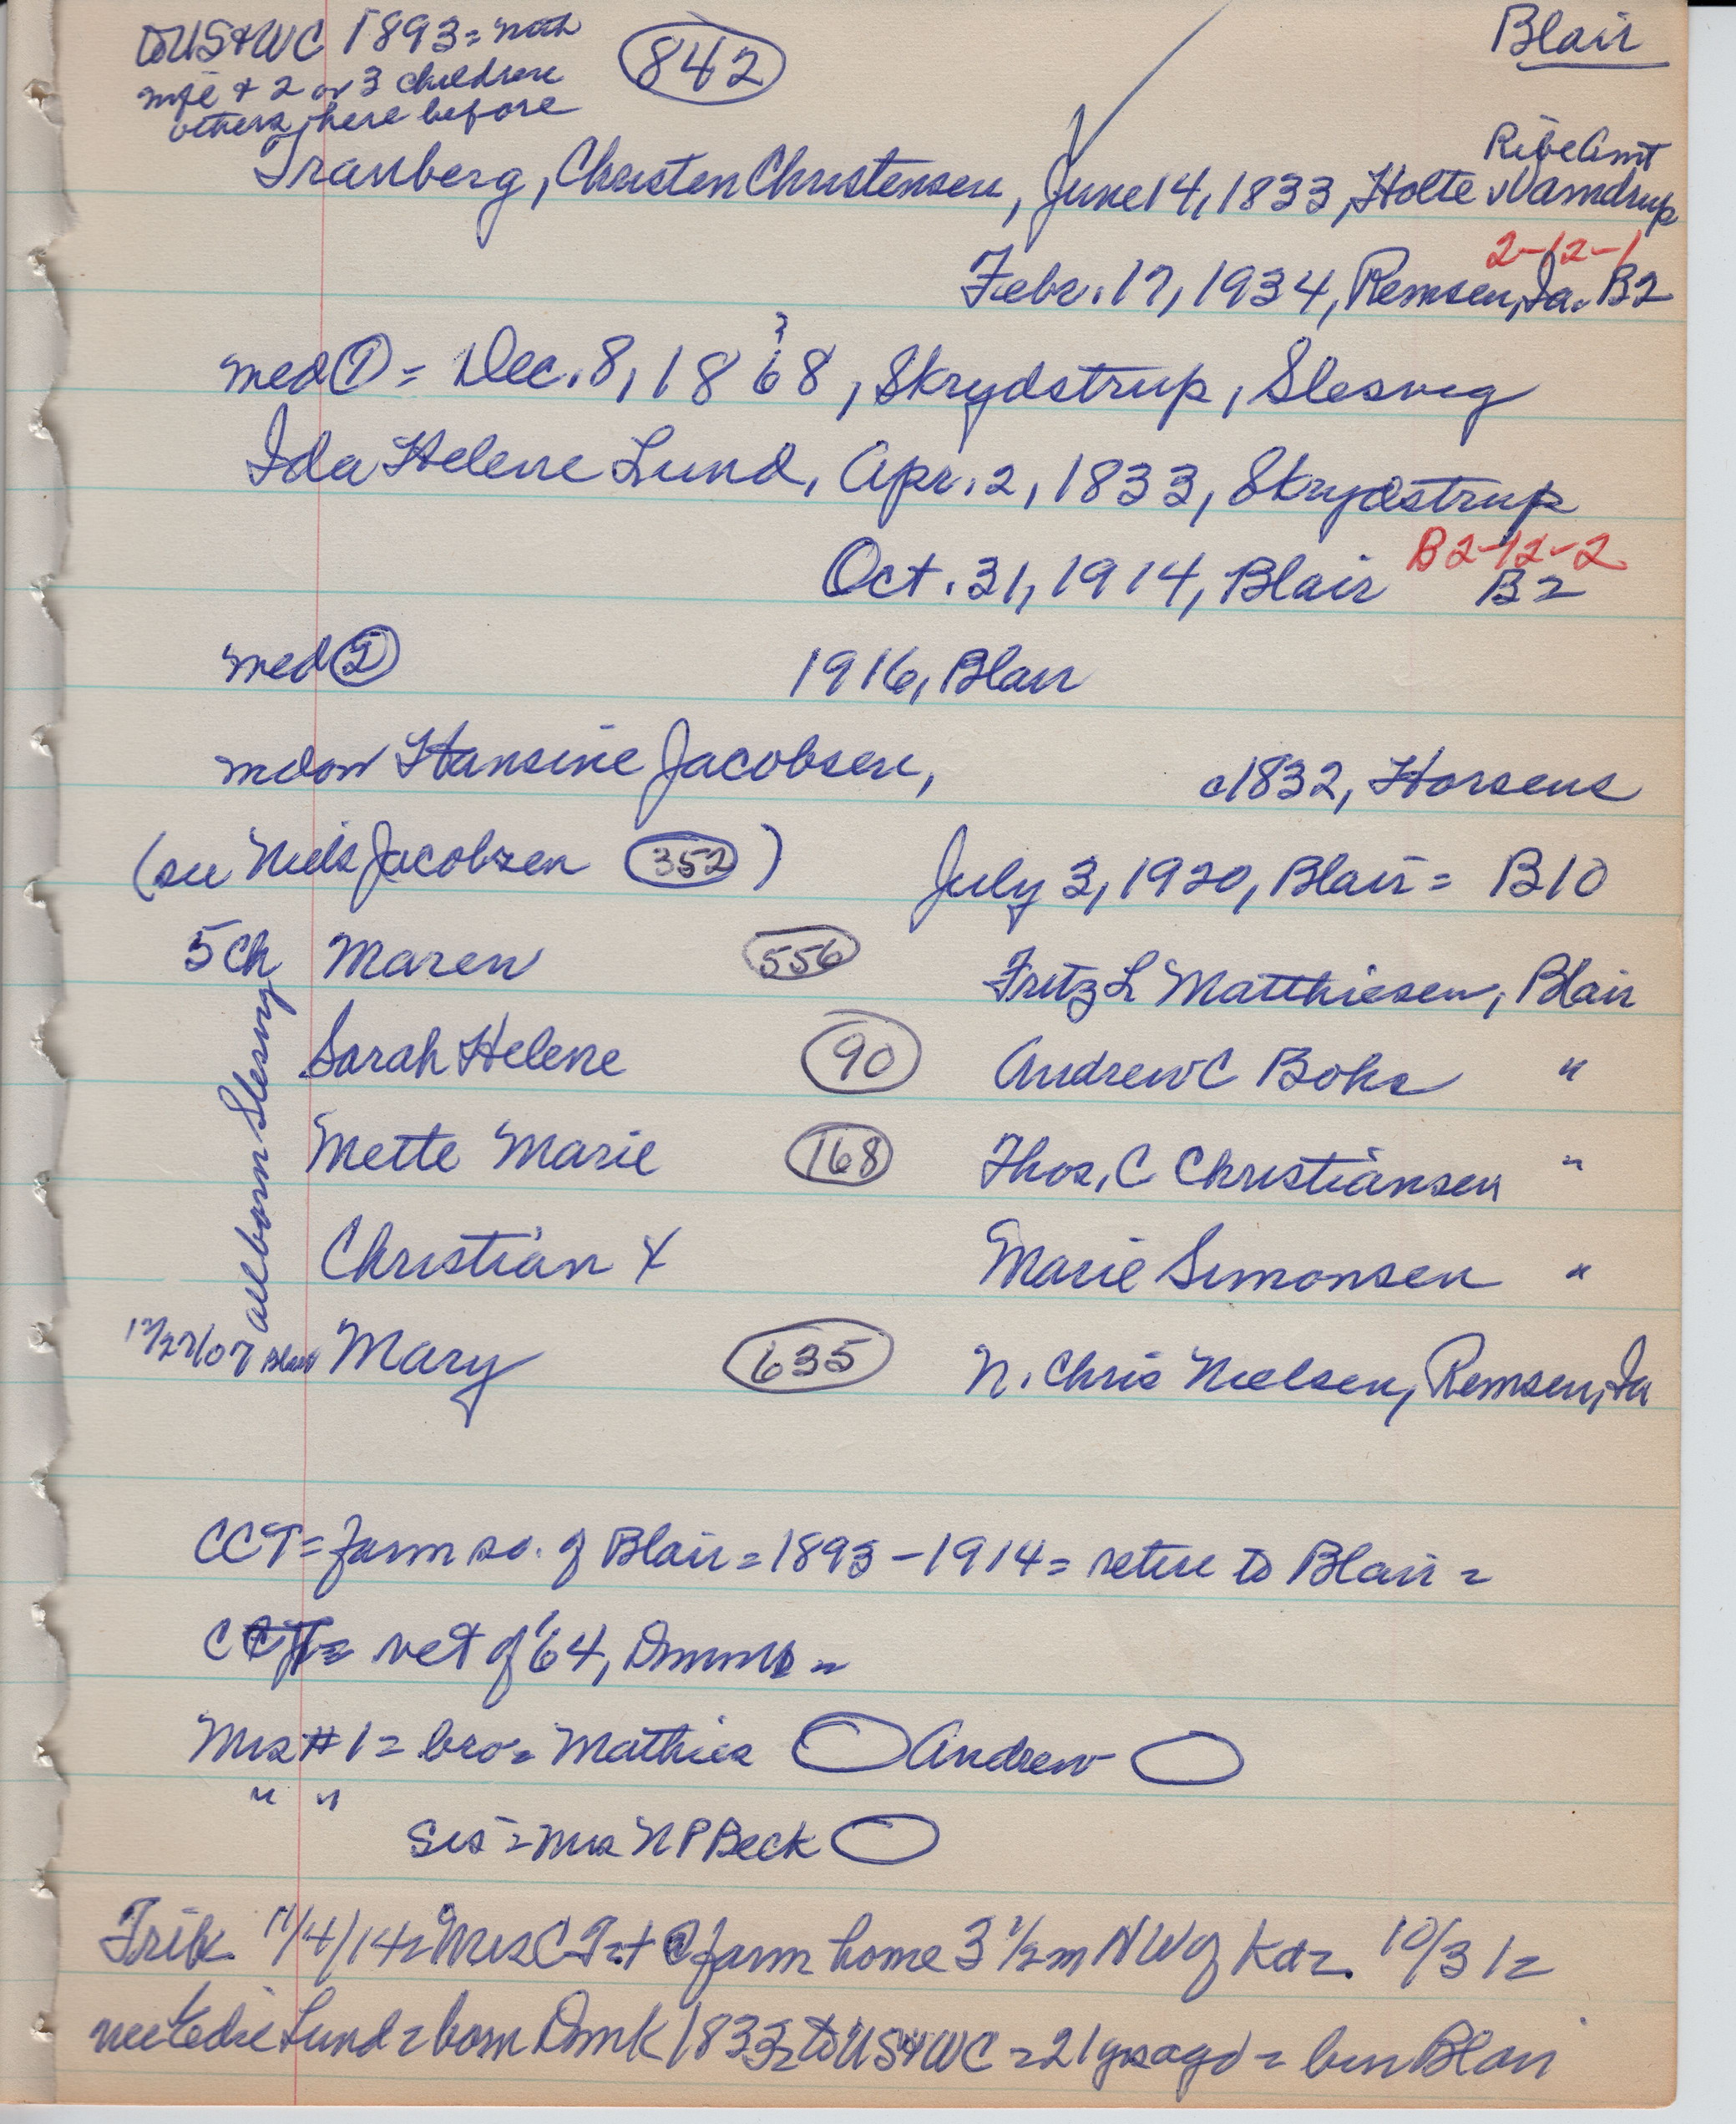 to US & WC 1893 = with
wife & 2 or 3 children
others here before
842
Blair
Ribe Amt
Tranberg, Christen Christensen, June 14, 1833, Holte v Vamdrup
2-12-1
Febr. 17, 1934, Remsen, Ia. B2
med ① = Dec. 8, 1868, Skrydstrup, Slesvig
?
Ida Helene Lund, Apr. 2, 1833, Skrydstrup
B2-12-2
Oct. 31, 1914, Blair B2
med ② 1916, Blair
wdow Hansine Jacobsen, c1832, Horsens
(see Niels Jacobsen 352) July 3, 1920, Blair = B10
5 Ch Maren 556 Fritz L Matthiesen, Blair
Sarah Helene 90 Andrew C Bohs "
Mette Marie 168 Thos. C Christiansen "
Christian X Marie Simonsen "
12/27/07 Blair Mary 635 N. Chris Nielsen, Remsen, Ia
all born Slesvig
CCT = farm so. of Blair = 1893-1914 = retire to Blair =
CCT = vet of '64, Dmmk =
Mrs #1 = bro = Mathies Andrew
" " Sis = Mrs N P Beck
Trib. 11/4/14 = Mrs C T = + @ farm home 3 1/2 m NW of Kd =. 10/31 =
nee Edie Lund = born Dmk 1833 = to US & WC = 21 yrs ago = bur Blair